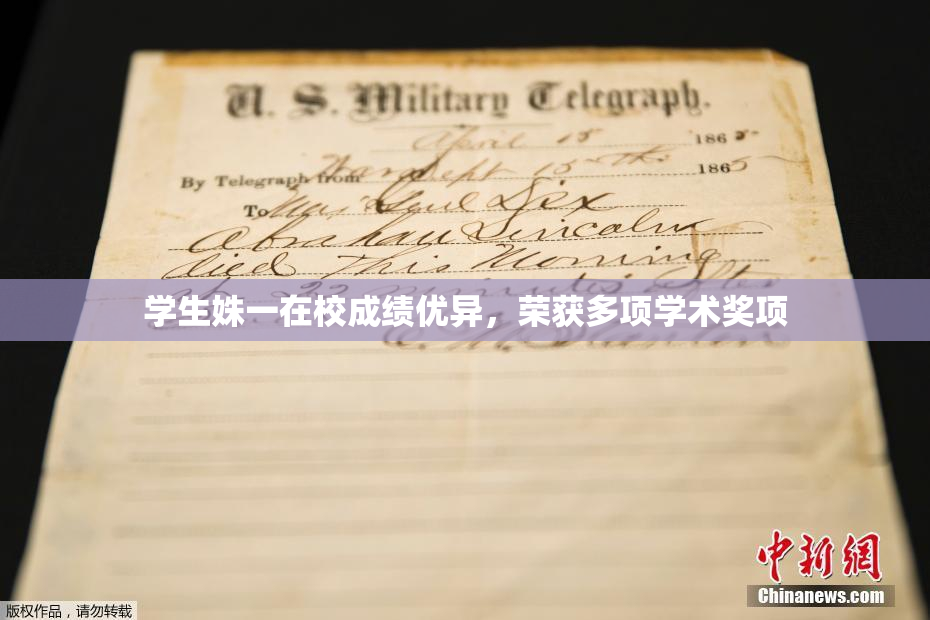 U. S. Military Telegraph.
April 15 1865
By Telegraph from War Dept 15th 1865
To Maj Genl Dix
Abraham Lincoln
died This Morning
at 22 minutes after
学生姝一在校成绩优异，荣获多项学术奖项
E. M. Stanton
中新网
Chinanews.com
版权作品，请勿转载